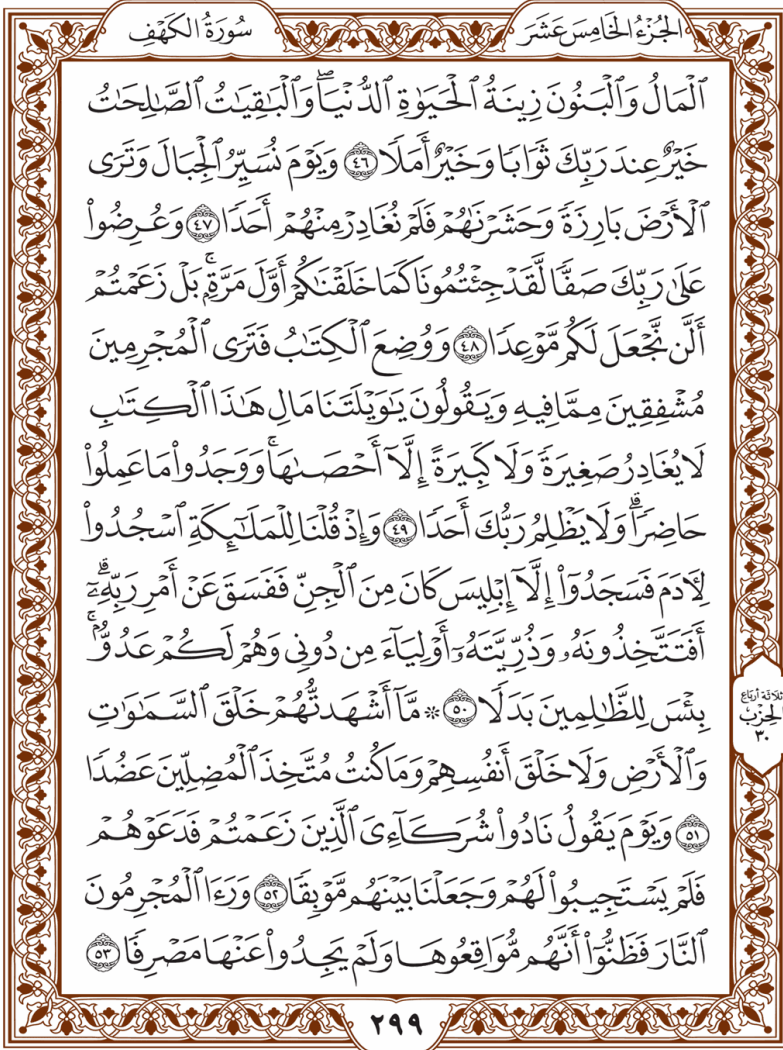 سُورَةُ الكَهْفِ
الجُزْءُ الخَامِسَ عَشَرَ
ٱلْمَالُ وَٱلْبَنُونَ زِينَةُ ٱلْحَيَوٰةِ ٱلدُّنْيَاۖ وَٱلْبَٰقِيَٰتُ ٱلصَّٰلِحَٰتُ
خَيْرٌ عِندَ رَبِّكَ ثَوَابًا وَخَيْرٌ أَمَلًا ٤٦ وَيَوْمَ نُسَيِّرُ ٱلْجِبَالَ وَتَرَى
ٱلْأَرْضَ بَارِزَةً وَحَشَرْنَٰهُمْ فَلَمْ نُغَادِرْ مِنْهُمْ أَحَدًا ٤٧ وَعُرِضُوا۟
عَلَىٰ رَبِّكَ صَفًّا لَّقَدْ جِئْتُمُونَا كَمَا خَلَقْنَٰكُمْ أَوَّلَ مَرَّةٍۭۚ بَلْ زَعَمْتُمْ
أَلَّن نَّجْعَلَ لَكُم مَّوْعِدًا ٤٨ وَوُضِعَ ٱلْكِتَٰبُ فَتَرَى ٱلْمُجْرِمِينَ
مُشْفِقِينَ مِمَّا فِيهِ وَيَقُولُونَ يَٰوَيْلَتَنَا مَالِ هَٰذَا ٱلْكِتَٰبِ
لَا يُغَادِرُ صَغِيرَةً وَلَا كَبِيرَةً إِلَّآ أَحْصَىٰهَاۚ وَوَجَدُوا۟ مَا عَمِلُوا۟
حَاضِرًاۗ وَلَا يَظْلِمُ رَبُّكَ أَحَدًا ٤٩ وَإِذْ قُلْنَا لِلْمَلَٰٓئِكَةِ ٱسْجُدُوا۟
لِءَادَمَ فَسَجَدُوٓا۟ إِلَّآ إِبْلِيسَ كَانَ مِنَ ٱلْجِنِّ فَفَسَقَ عَنْ أَمْرِ رَبِّهِۦٓۗ
أَفَتَتَّخِذُونَهُۥ وَذُرِّيَّتَهُۥٓ أَوْلِيَآءَ مِن دُونِى وَهُمْ لَكُمْ عَدُوٌّۢۚ
بِئْسَ لِلظَّٰلِمِينَ بَدَلًا ٥٠ ۞ مَّآ أَشْهَدتُّهُمْ خَلْقَ ٱلسَّمَٰوَٰتِ
وَٱلْأَرْضِ وَلَا خَلْقَ أَنفُسِهِمْ وَمَا كُنتُ مُتَّخِذَ ٱلْمُضِلِّينَ عَضُدًا
٥١ وَيَوْمَ يَقُولُ نَادُوا۟ شُرَكَآءِىَ ٱلَّذِينَ زَعَمْتُمْ فَدَعَوْهُمْ
فَلَمْ يَسْتَجِيبُوا۟ لَهُمْ وَجَعَلْنَا بَيْنَهُم مَّوْبِقًا ٥٢ وَرَءَا ٱلْمُجْرِمُونَ
ٱلنَّارَ فَظَنُّوٓا۟ أَنَّهُم مُّوَاقِعُوهَا وَلَمْ يَجِدُوا۟ عَنْهَا مَصْرِفًا ٥٣
ثلاثة أرباع
الحِزْبُ
٣٠
٢٩٩